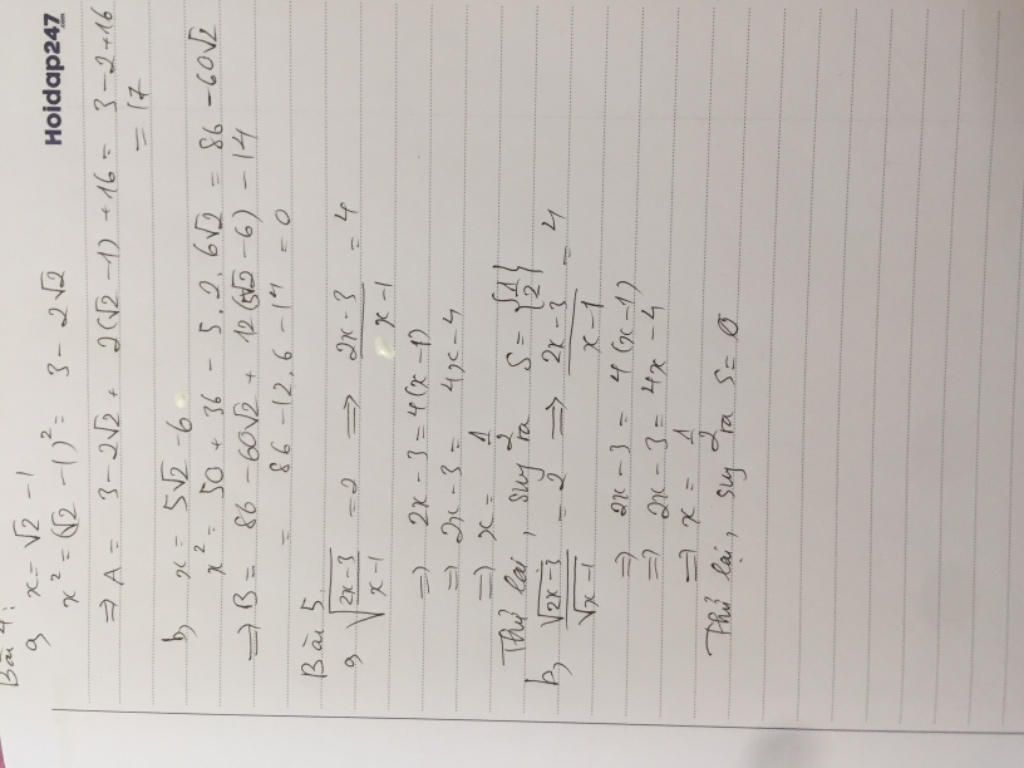 Hoidap247
.com
Bài 4:
a, x = √2 - 1
x² = (√2 - 1)² = 3 - 2√2
⇒ A = 3 - 2√2 + 2(√2 - 1) + 16 = 3 - 2 + 16
= 17
b, x = 5√2 - 6
x² = 50 + 36 - 5.2.6√2 = 86 - 60√2
⇒ B = 86 - 60√2 + 12(5√2 - 6) - 14
= 86 - 12.6 - 14 = 0
Bài 5
a, √((2x-3)/(x-1)) = 2 ⇒ (2x-3)/(x-1) = 4
⇒ 2x - 3 = 4(x - 1)
⇒ 2x - 3 = 4x - 4
⇒ x = 1/2
Thử lại, suy ra S = {1/2}
b, √(2x-3)/√(x-1) = 2 ⇒ (2x-3)/(x-1) = 4
⇒ 2x - 3 = 4(x - 1)
⇒ 2x - 3 = 4x - 4
⇒ x = 1/2
Thử lại, suy ra S = ∅